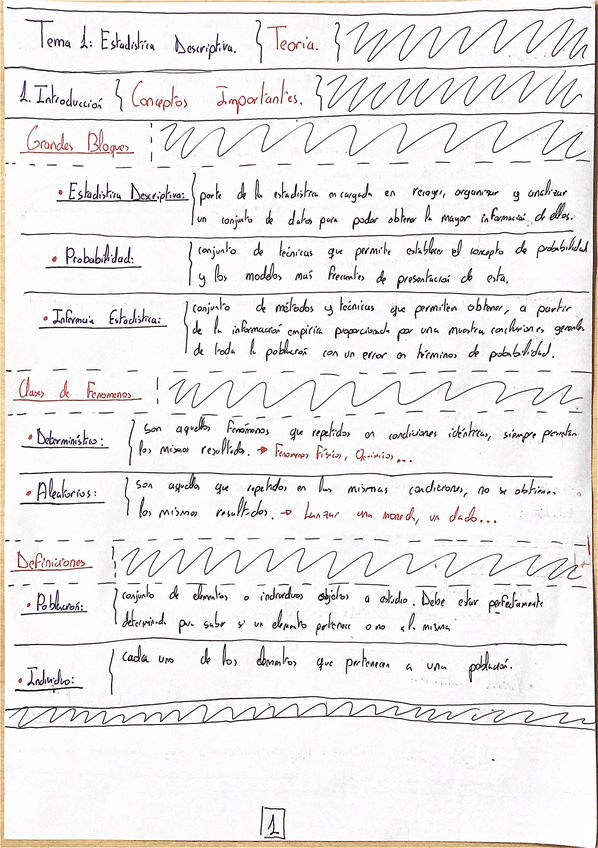 Tema 1: Estadística Descriptiva. } Teoria. }
1. Introducción } Conceptos Importantes. }
Grandes Bloques
• Estadística Descriptiva: parte de la estadistica encargada en recoger, organizar y analizar
un conjunto de datos para poder obtener la mayor información de ellos.
• Probabilidad: conjunto de técnicas que permite establecer el concepto de probabilidad
y los modelos mas frecuentes de presentación de esta.
• Inferencia Estadística: conjunto de métodos y técnicas que permiten obtener, a partir
de la información empirica proporcionada por una muestra conclusiones generales
de toda la población con un error en términos de probabilidad.
Clases de Fenomenos
• Deterministico: Son aquellos fenómenos que repetidos en condiciones idénticas, siempre presentan
los mismos resultados. → Fenomenos Físicos, Quimicos...
• Aleatorios: son aquellos que repetidos en las mismas condiciones, no se obtienen
los mismos resultados. → Lanzar una moneda, un dado...
Definiciones
• Poblacion: conjunto de elementos o individuos objetos a estudio. Debe estar perfectamente
determinada para saber si un elemento pertenece o no a la misma
• Individuo: cada uno de los elementos que pertenecen a una población.
1